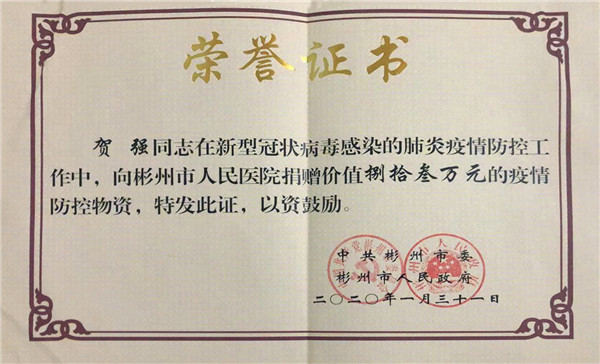 荣誉证书
贺 强同志在新型冠状病毒感染的肺炎疫情防控工
作中，向彬州市人民医院捐赠价值捌拾叁万元的疫情
防控物资，特发此证，以资鼓励。
中共彬州市委
彬州市人民政府
二〇二〇年一月三十一日